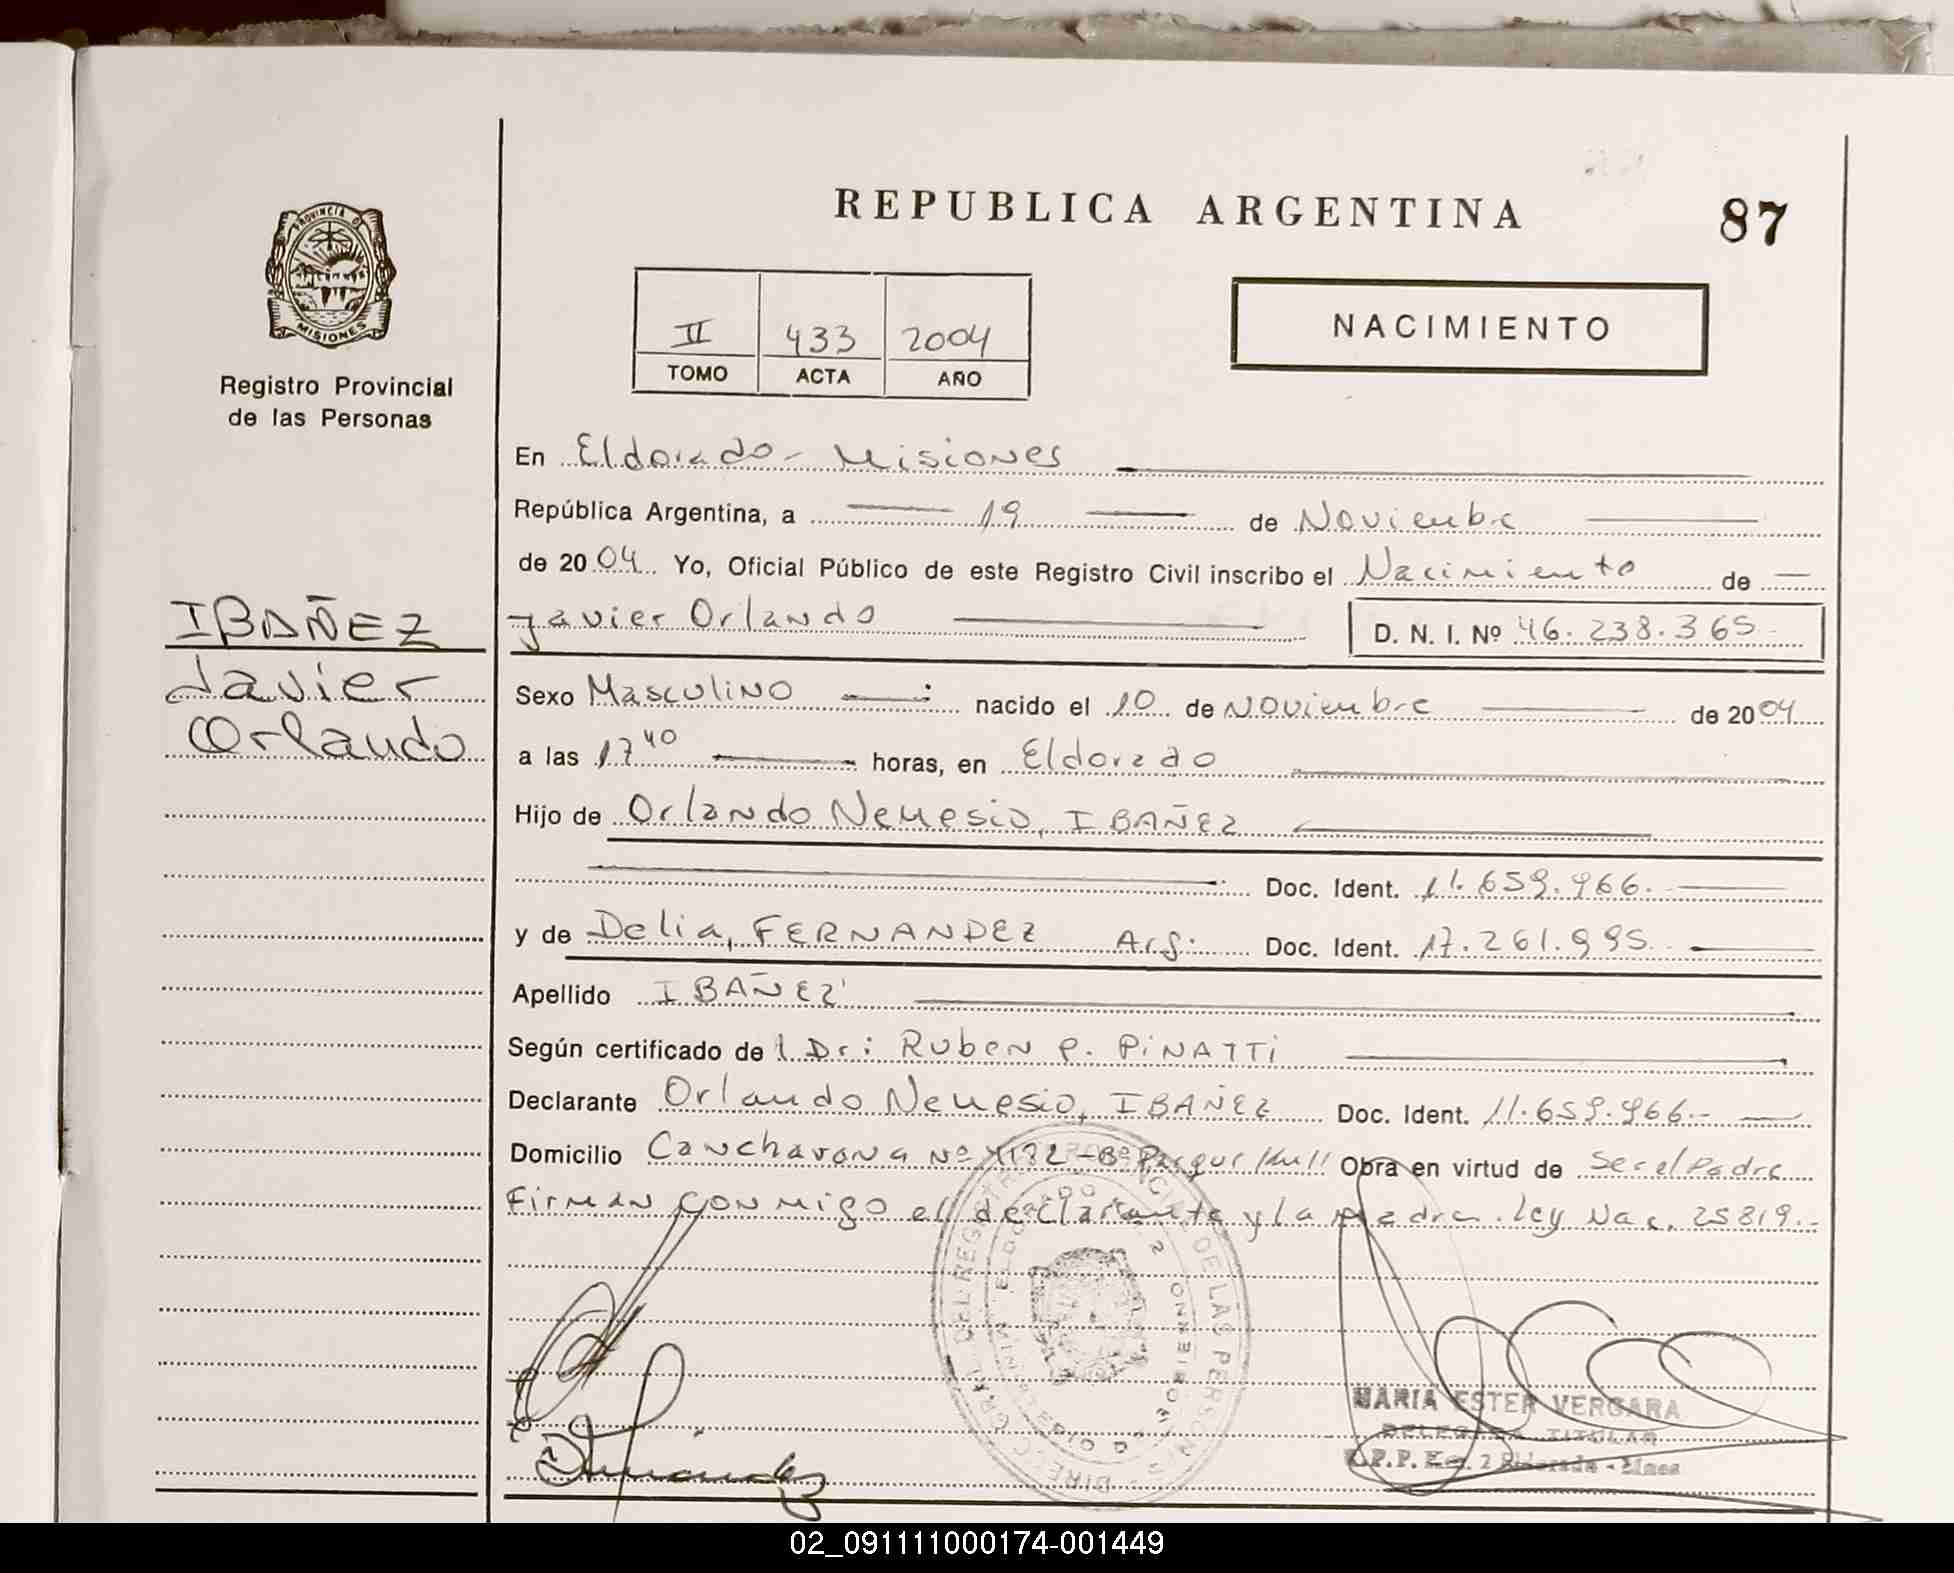 REPUBLICA ARGENTINA
87
PROVINCIA DE
MISIONES
Registro Provincial
de las Personas
II 433 2004
TOMO ACTA AÑO
NACIMIENTO
IBAÑEZ
Javier
Orlando
En Eldorado - Misiones
República Argentina, a 19 de Noviembre
de 2004 Yo, Oficial Público de este Registro Civil inscribo el Nacimiento de
Javier Orlando D. N. I. Nº 46.238.365
Sexo Masculino nacido el 10 de Noviembre de 2004
a las 17 40 horas, en Eldorado
Hijo de Orlando Nemesio, IBAÑEZ
Doc. Ident. 11.659.966.
y de Delia, FERNANDEZ Arg. Doc. Ident. 17.261.995
Apellido IBAÑEZ
Según certificado del Dr: Ruben P. PiNATTi
Declarante Orlando Nemesio, IBAÑEZ Doc. Ident. 11.659.966.-
Domicilio Nº Bº Parque Obra en virtud de Ser el Padre
Firman conmigo el declarante y la Madre. Ley Nac. 25819.-
MARIA ESTER VERGARA
DELEGADA TITULAR
R.P.P. 2 Eldorado - Mnes
02_091111000174-001449